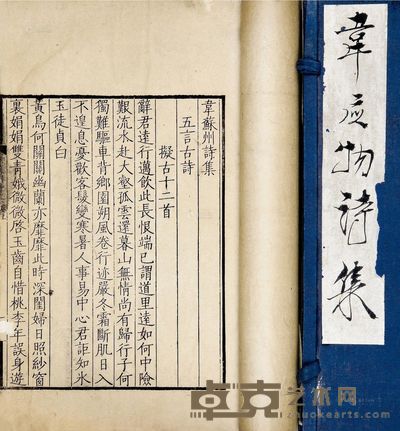 韋應物詩集
韋蘇州詩集
五言古詩
擬古十二首
辭君遠行邁飲此長恨端已謂道里遠如何中險
艱流水赴大壑孤雲還暮山無情尚有歸行子何
獨難驅車背鄉園朔風卷行迹嚴冬霜斷肌日入
不遑息憂歡客髮變寒暑人事易中心君詎知氷
玉徒貞白
黃鳥何關關幽蘭亦靡靡此時深閨婦日照紗窗
裏娟娟雙青娥微微啓玉齒自惜桃李年誤身遊
卓克艺术网
zhuokearts.com